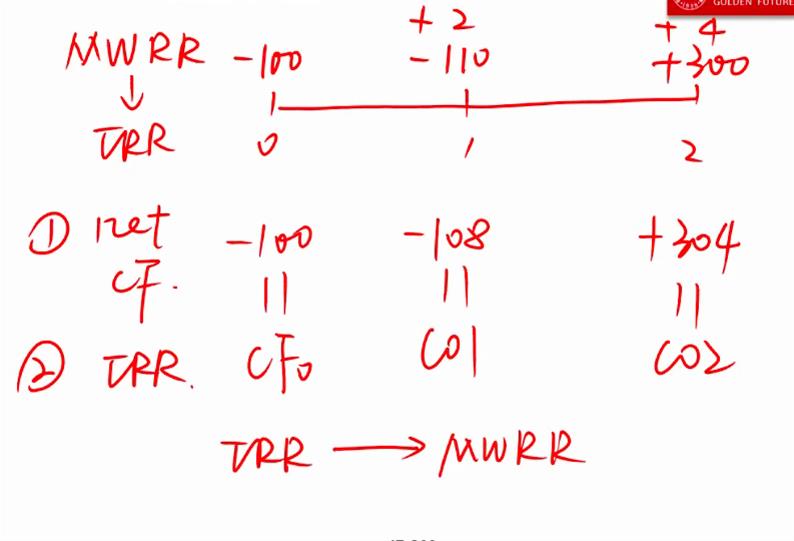 GOLDEN FUTURE
+ 2 + 4
MWRR -100 -110 +300
↓
IRR 0 1 2
① net -100 -108 +304
CF. || || ||
② IRR. CF0 C01 C02
IRR → MWRR